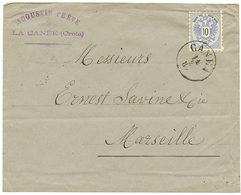 LA CANEE (Crète)
10
CANEA
Messieurs
Ernest Savine & Cie
Marseille